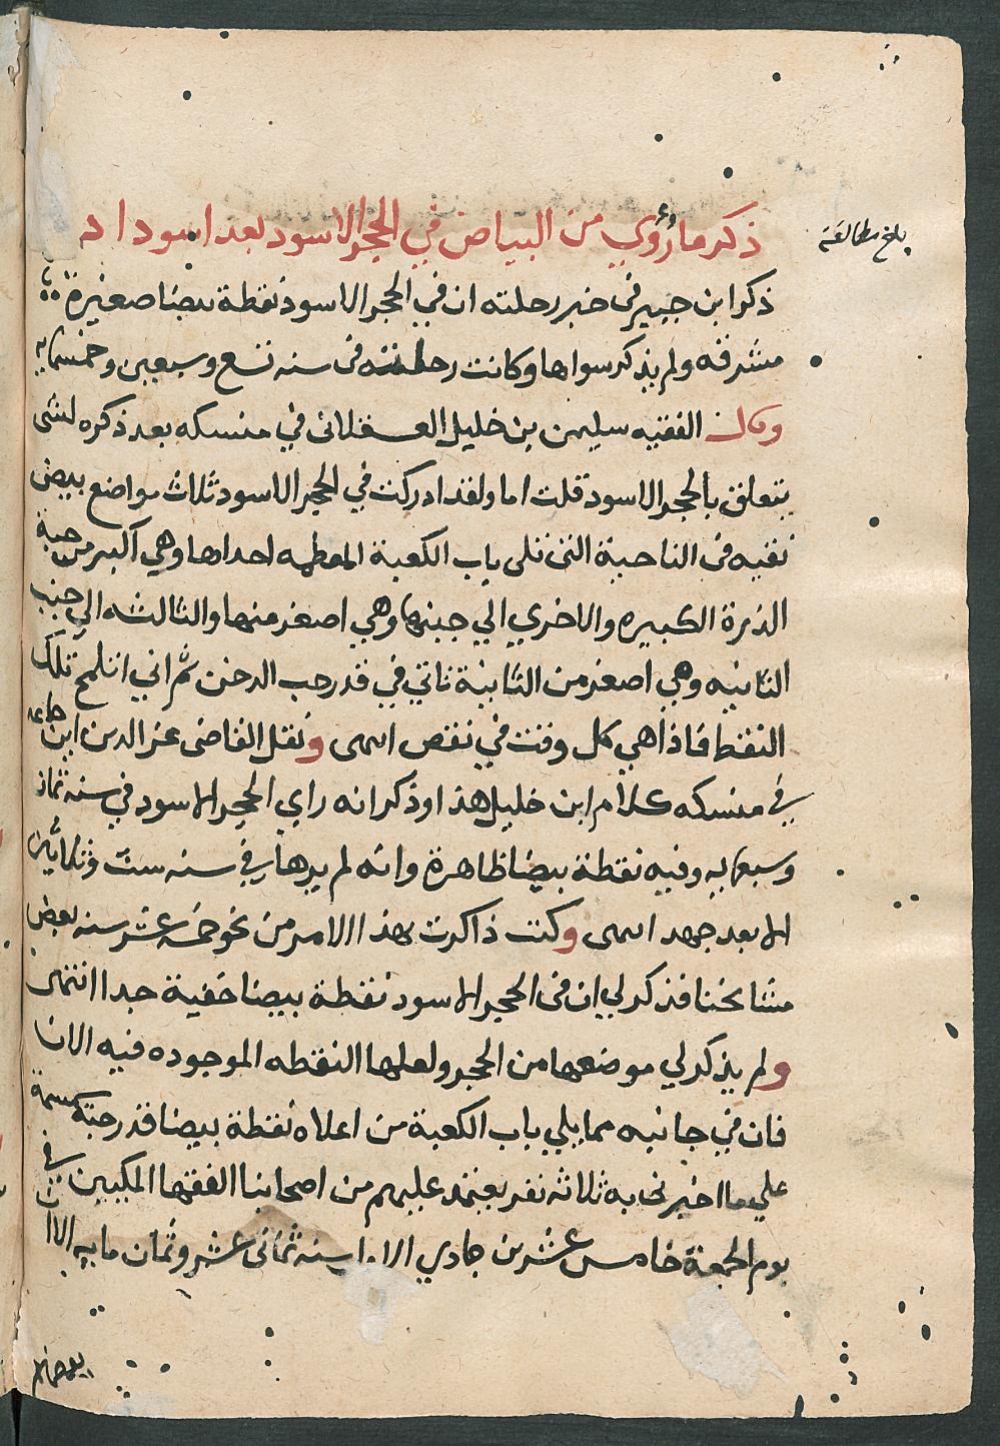 ذكر ما رُوي من البياض في الحجر الاسود بعد اسوداده
بلغ مطالعة
ذكر ابن جبير في خبر رحلته ان في الحجر الاسود نقطة بيضا صغيرة
مشرقه ولم يذكر سواها وكانت رحلته في سنه تسع وسبعين وخمسمايه
وقال الفقيه سليمن بن خليل العسقلاني في منسكه بعد ذكره لشي
يتعلق بالحجر الاسود قلت اما ولقد ادركت في الحجر الاسود ثلاث مواضع بيض
نقيه في الناحية التي تلي باب الكعبة المعظمه احداها وهي اكبرمن حبة
الذرة الكبيره والاخري الي جبنها وهي اصغر منها والثالثه الي جنب
الثانيه وهي اصغر من الثانية تاتي في قدر حب الدخن ثم اني اتلمح تلك
النقط فاذا هي كل وقت في نقص انتهى ونقل القاضي عز الدين ابن جماعه
في منسكه كلام ابن خليل هذا وذكر انه راي الحجر الاسود في سنه ثمان
وسبعمايه وفيه نقطة بيضا ظاهرة وانه لم يرها في سنه ست وثلاثين
الا بعد جهد انتهى وكنت ذاكرت بهذا الامر من نحو خمسه عشر سنه بعض
مشايخنا فذكر لي ان في الحجر الاسود نقطة بيضا خفية جدا انتهى
ولم يذكر لي موضعها من الحجر ولعلها النقطه الموجوده فيه الان
فان في جانبه مما يلي باب الكعبة من اعلاه نقطة بيضا قدر حبة سمسمة
علي ما اخبرني به ثلاثه نفر يعتمد عليهم من اصحابنا الفقها المكيين في
يوم الجمعة خامس عشرين جمادي الاولي سنه ثماني عشر وثمان مايه الا ان
بعضهم